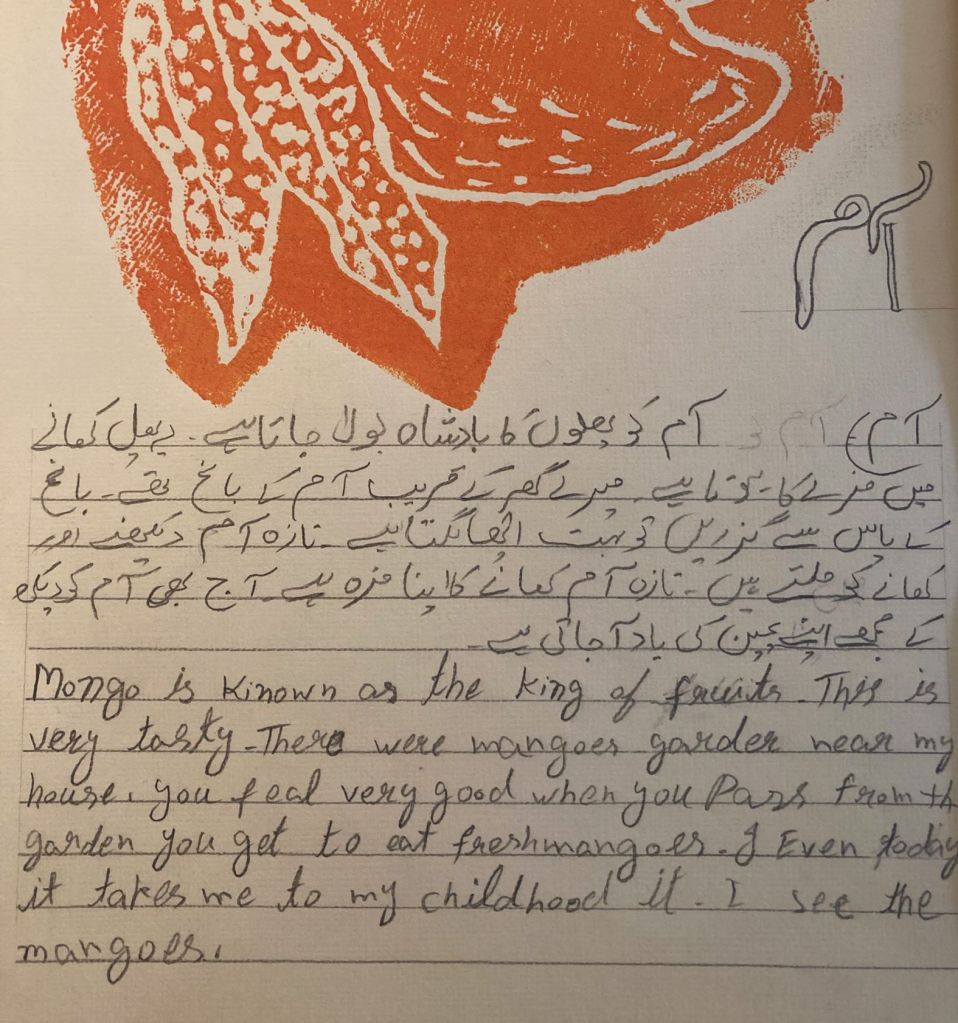 آم
آم) آم کو آم کو پھلوں کا بادشاہ بولا جاتا ہے۔ یہ پھل کھانے
میں مزے کا ہوتا ہے۔ میرے گھر کے قریب آم کے باغ تھے۔ باغ
کے پاس سے گزریں تو بہت اچھا لگتا ہے۔ تازہ آم دیکھنے اور
کھانے کو ملتے ہیں۔ تازہ آم کھانے کا اپنا مزہ ہے۔ آج بھی آم کو دیکھ
کے مجھے اپنے بچپن کی یاد آ جاتی ہے۔
Mongo is Kinown as the King of fruits. This is
very tasty. There were mangoes garder near my
house. you feal very good when you Pass from th
garden you get to eat freshmangoes. I Even today
it takes me to my childhood it. I see the
mangoes.